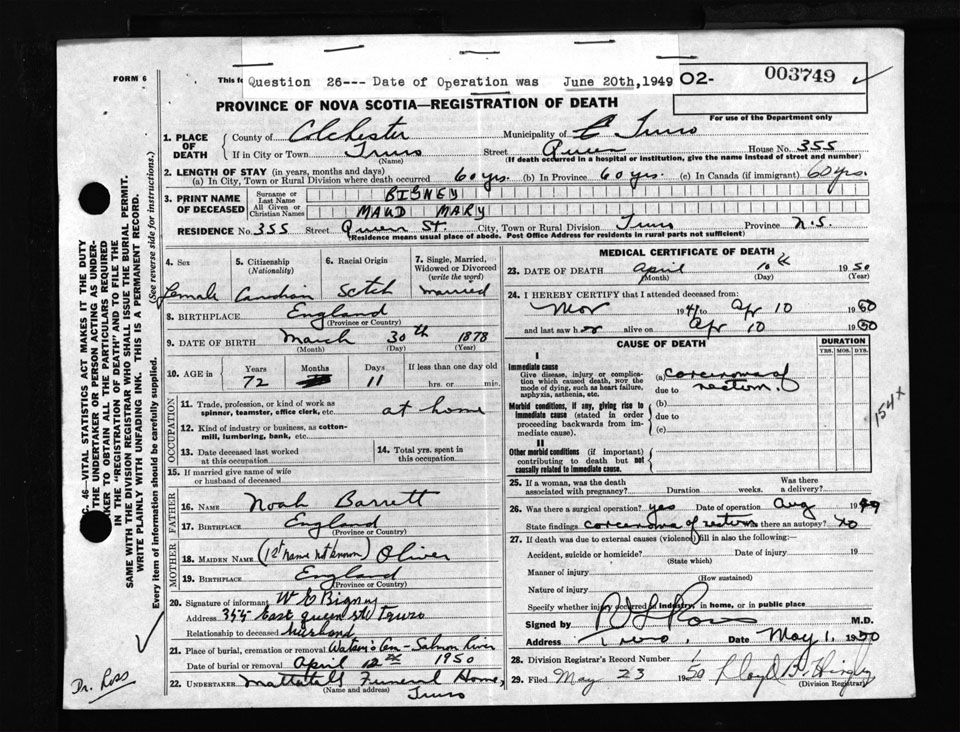 FORM 6
This fo
Question 26--- Date of Operation was June 20th,1949
02- 003749
PROVINCE OF NOVA SCOTIA—REGISTRATION OF DEATH
For use of the Department only
1. PLACE OF DEATH County of Colchester Municipality of Truro
If in City or Town Truro (Name) Street Queen House No. 355
(If death occurred in a hospital or institution, give the name instead of street and number)
2. LENGTH OF STAY (in years, months and days)
(a) In City, Town or Rural Division where death occurred 60 yrs. (b) In Province 60 yrs. (c) In Canada (if immigrant) 60 yrs.
3. PRINT NAME OF DECEASED Surname or Last Name BIGNEY
All Given or Christian Names MAUD MARY
RESIDENCE No. 355 Street Queen St. City, Town or Rural Division Truro Province N.S.
(Residence means usual place of abode. Post Office Address for residents in rural parts not sufficient)
4. Sex 5. Citizenship (Nationality) 6. Racial Origin 7. Single, Married, Widowed or Divorced (write the word)
female Canadian Scotch married
8. BIRTHPLACE England
(Province or Country)
9. DATE OF BIRTH March 30th 1878
(Month) (Day) (Year)
10. AGE in Years Months Days If less than one day old
72 11 hrs. or min.
OCCUPATION
11. Trade, profession, or kind of work as spinner, teamster, office clerk, etc. at home
12. Kind of industry or business, as cotton-mill, lumbering, bank, etc.
13. Date deceased last worked at this occupation
14. Total yrs. spent in this occupation
15. If married give name of wife or husband of deceased
FATHER
16. NAME Noah Barrett
17. BIRTHPLACE England
(Province or Country)
MOTHER
18. MAIDEN NAME (1st name not known) Oliver
19. BIRTHPLACE England
(Province or Country)
20. Signature of informant W E Bigney
Address 355 East Queen St Truro
Relationship to deceased husband
21. Place of burial, cremation or removal Watson's Cem - Salmon River
Date of burial or removal April 12th 1950
22. UNDERTAKER Mattatall Funeral Home,
(Name and address) Truro
MEDICAL CERTIFICATE OF DEATH
23. DATE OF DEATH April 10 1950
(Month) (Day) (Year)
24. I HEREBY CERTIFY that I attended deceased from:
1949 Apr 10 1950
and last saw her alive on Apr 10 1950
CAUSE OF DEATH DURATION
YRS. MOS. DYS.
I
Immediate cause
Give disease, injury or complication which caused death, NOT the mode of dying, such as heart failure, asphyxia, asthenia, etc.
(a) carcinoma of
due to rectum.
Morbid conditions, if any, giving rise to immediate cause (stated in order proceeding backwards from immediate cause).
(b)
due to
(c)
II
Other morbid conditions (if important) contributing to death but not causally related to immediate cause.
154x
25. If a woman, was the death associated with pregnancy? Duration weeks. Was there a delivery?
26. Was there a surgical operation? yes Date of operation Aug 1949
State findings carcinoma of rectum Was there an autopsy? no
27. If death was due to external causes (violence) fill in also the following:
Accident, suicide or homicide? Date of injury 19
(State which)
Manner of injury
(How sustained)
Nature of injury
Specify whether injury occurred in industry, in home, or in public place
Signed by M.D.
Address Truro, Date May 1, 1950
28. Division Registrar's Record Number 1
29. Filed May 23 1950 Lloyd B. Hingley
(Division Registrar)
C. 46—VITAL STATISTICS ACT MAKES IT THE DUTY
THE UNDERTAKER OR PERSON ACTING AS UNDER-
KER TO OBTAIN ALL THE PARTICULARS REQUIRED
IN THE "REGISTRATION OF DEATH" AND TO FILE THE
SAME WITH THE DIVISION REGISTRAR WHO SHALL ISSUE THE BURIAL PERMIT.
WRITE PLAINLY WITH UNFADING INK. THIS IS A PERMANENT RECORD.
Every item of information should be carefully supplied. (See reverse side for instructions.)
Dr. Ross